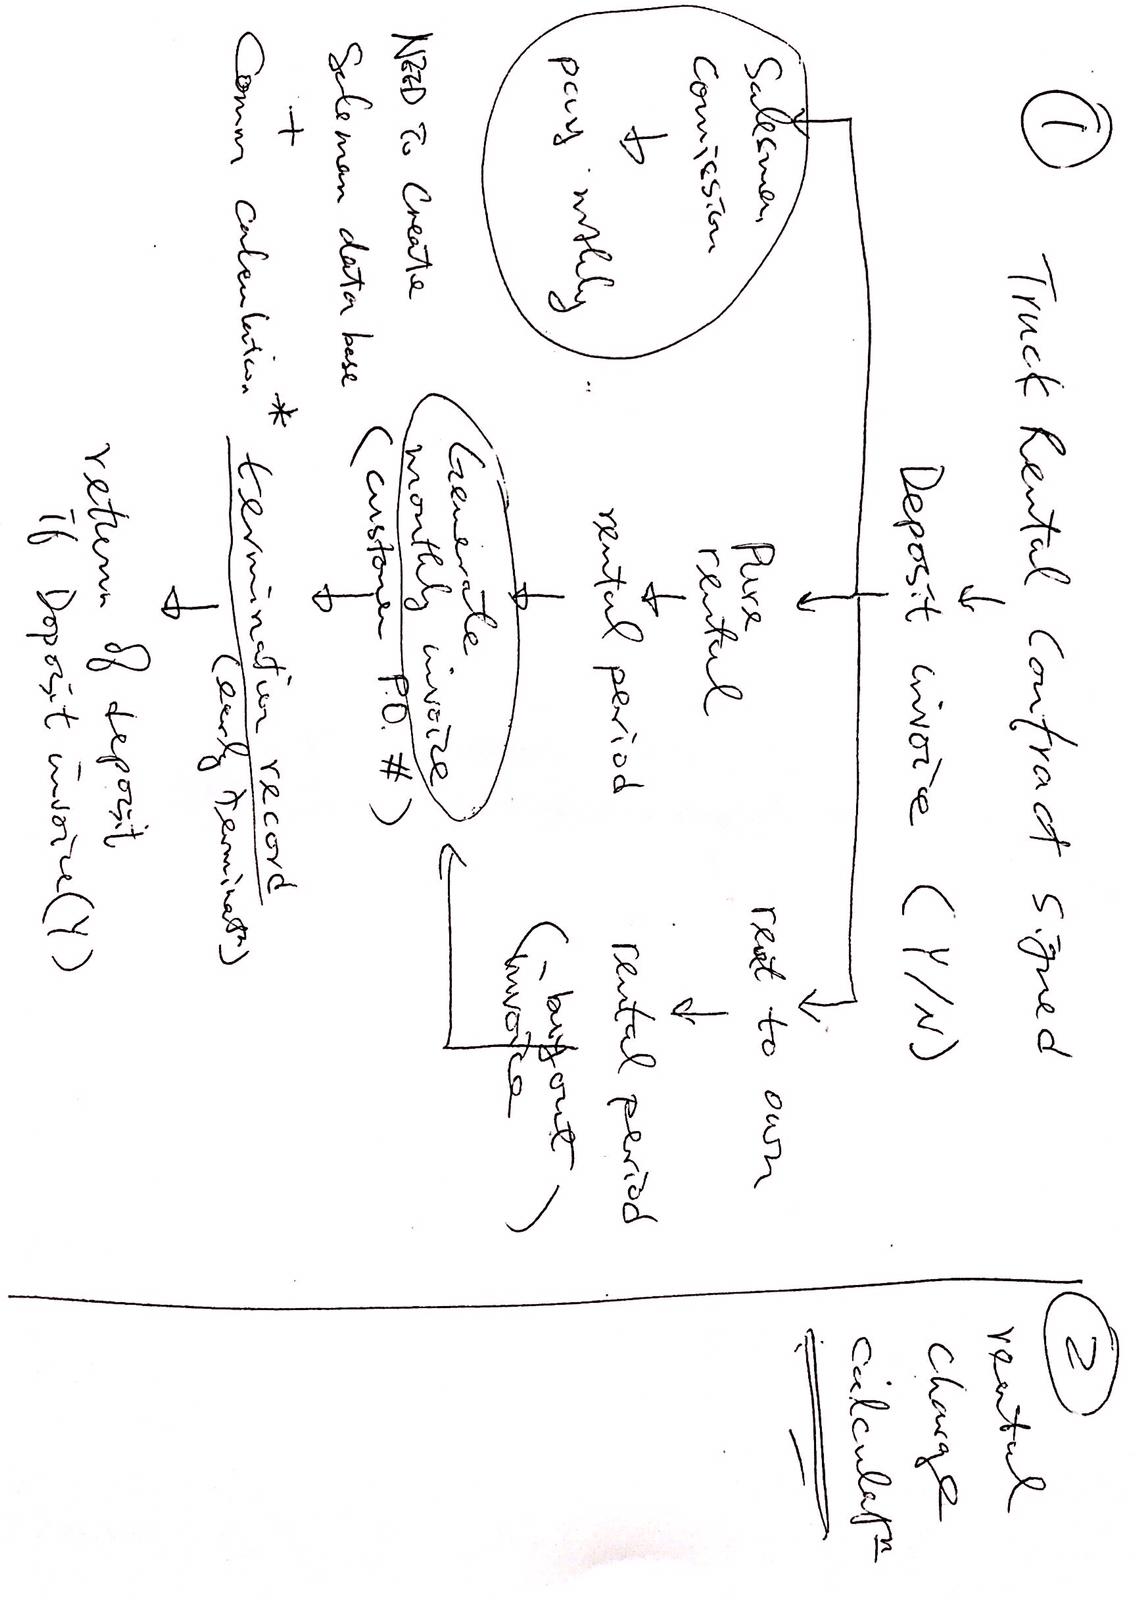 1
Truck Rental Contract signed
Deposit invoice (Y/N)
Salesmen
Comission
pay mthly
Pure
rental
rental period
rent to own
rental period
(buyout
invoice)
Generate
monthly invoice
(customer P.O. #)
NEED To Create
Saleman data base
+
Comm calculation*
termination record
(early terminatn)
return of deposit
if Doposit invoice (Y)
2
rental
charge
calculatn